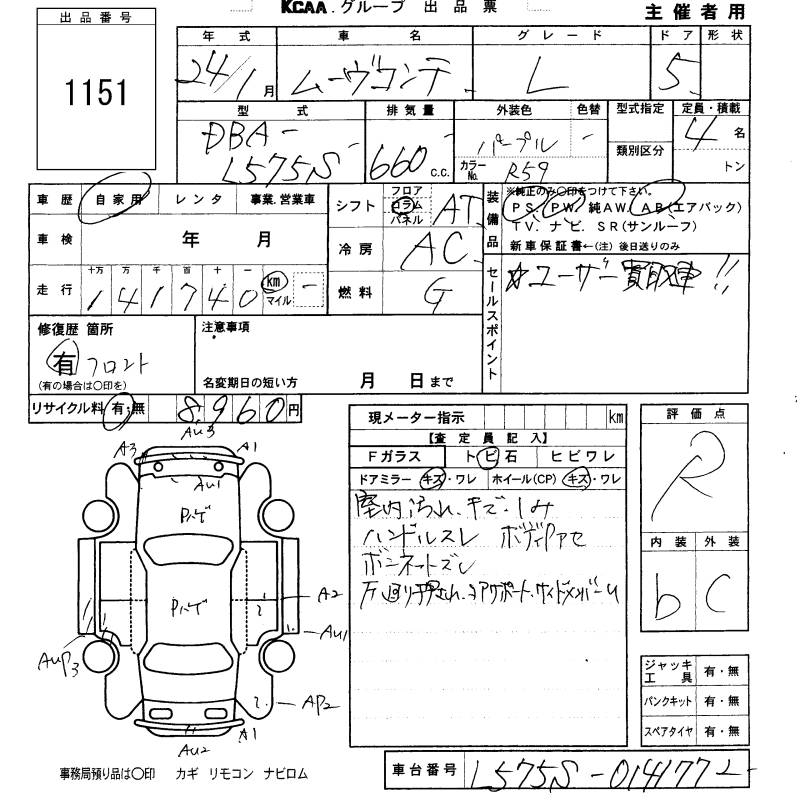 KCAA.グループ 出品票
主催者用
出品番号
1151
年式 車名 グレード ドア 形状
24/1月 ムーヴコンテ L 5
型式 排気量 外装色 色替 型式指定 定員・積載
DBA-
L575S 660 c.c. パープル - 4名
カラーNo. R59 類別区分 トン
車歴 自家用 レンタ 事業.営業車
シフト フロア コラム パネル AT
装備品
※純正のみ〇印をつけて下さい。
PS. PW. 純AW. AB(エアバック)
TV. ナビ. SR(サンルーフ)
新車保証書←(注)後日送りのみ
車検 年 月
冷房 AC
走行 十万 万 千 百 十 一
141740 km マイル -
燃料 G
セールスポイント
☆ユーザー買取車!!
修復歴 箇所
有 フロント
(有の場合は〇印を)
注意事項
名変期日の短い方 月 日まで
リサイクル料 有・無 8960円
現メーター指示 km
【査定員記入】
Fガラス トビ石 ヒビワレ
ドアミラー キズ・ワレ ホイール(CP) キズ・ワレ
室内汚れ.キズ.しみ
ハンドルスレ ボディPアセ
ボンネットズレ
評価点
R
内装 外装
b C
Au3
A3 A1
Au1
Pハゲ
Pハゲ
A2
Au1
AuP3
AP2
Au2 A1
ジャッキ工具 有・無
パンクキット 有・無
スペアタイヤ 有・無
事務局預り品は〇印 カギ リモコン ナビロム
車台番号 L575S-0141772